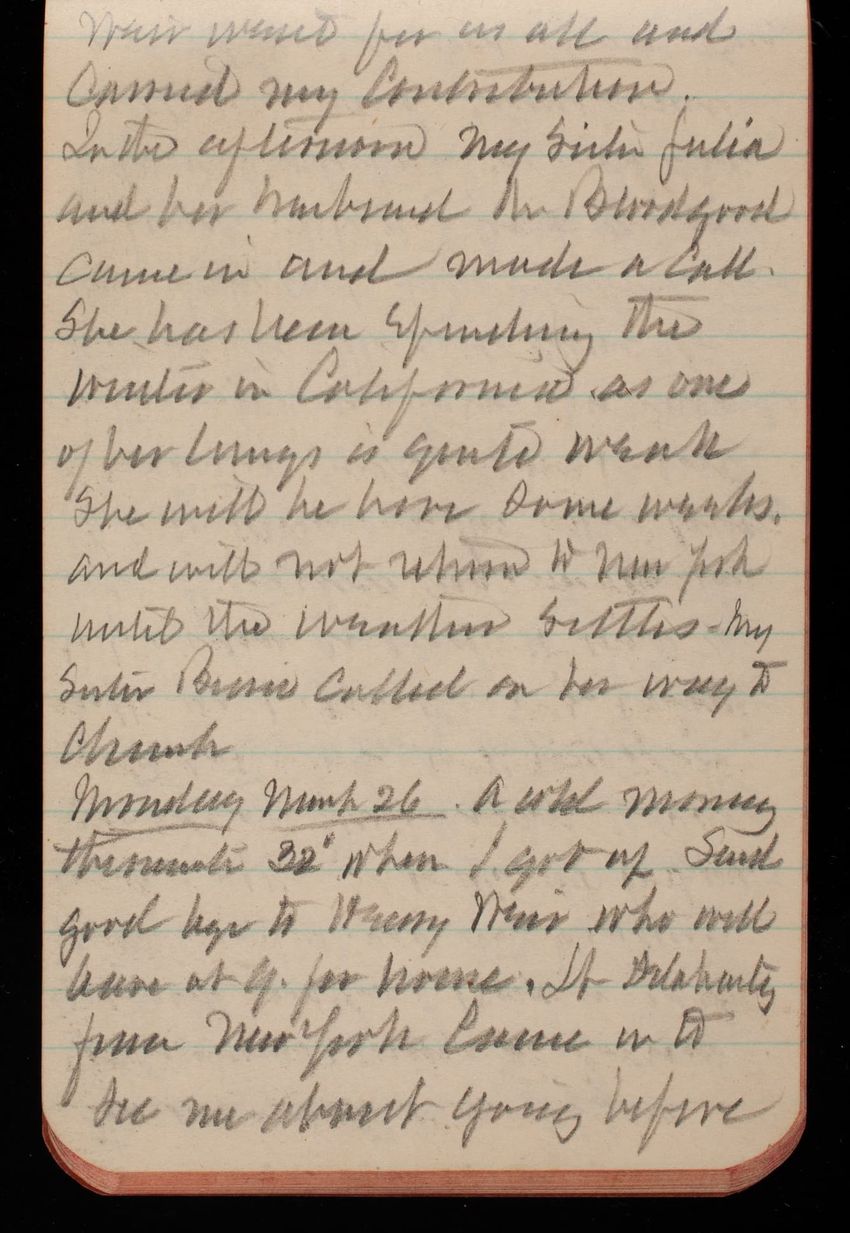 Weir went for us all and
Carried my Contribution.
In the afternoon my Sister Julia
and her husband Mr Bloodgood
came in and made a Call.
She has been Spending the
winter in California as one
of her lungs is quite weak
She will be here Some weeks.
and will not return to New York
until the weather Settles - My
Sister Bessie Called on her way to
Church
Monday March 26. A cold morning
thermomtr 32° when I got up. Said
good bye to Harry Weir who will
leave at 9. for home. Lt Delehanty
from New York Came in to
See me about going before